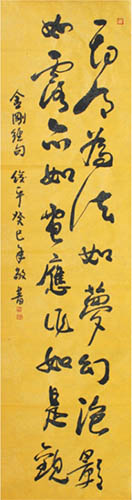 一切有為法如夢幻泡影
如露亦如電應作如是觀
金剛經句 癸巳年敬書